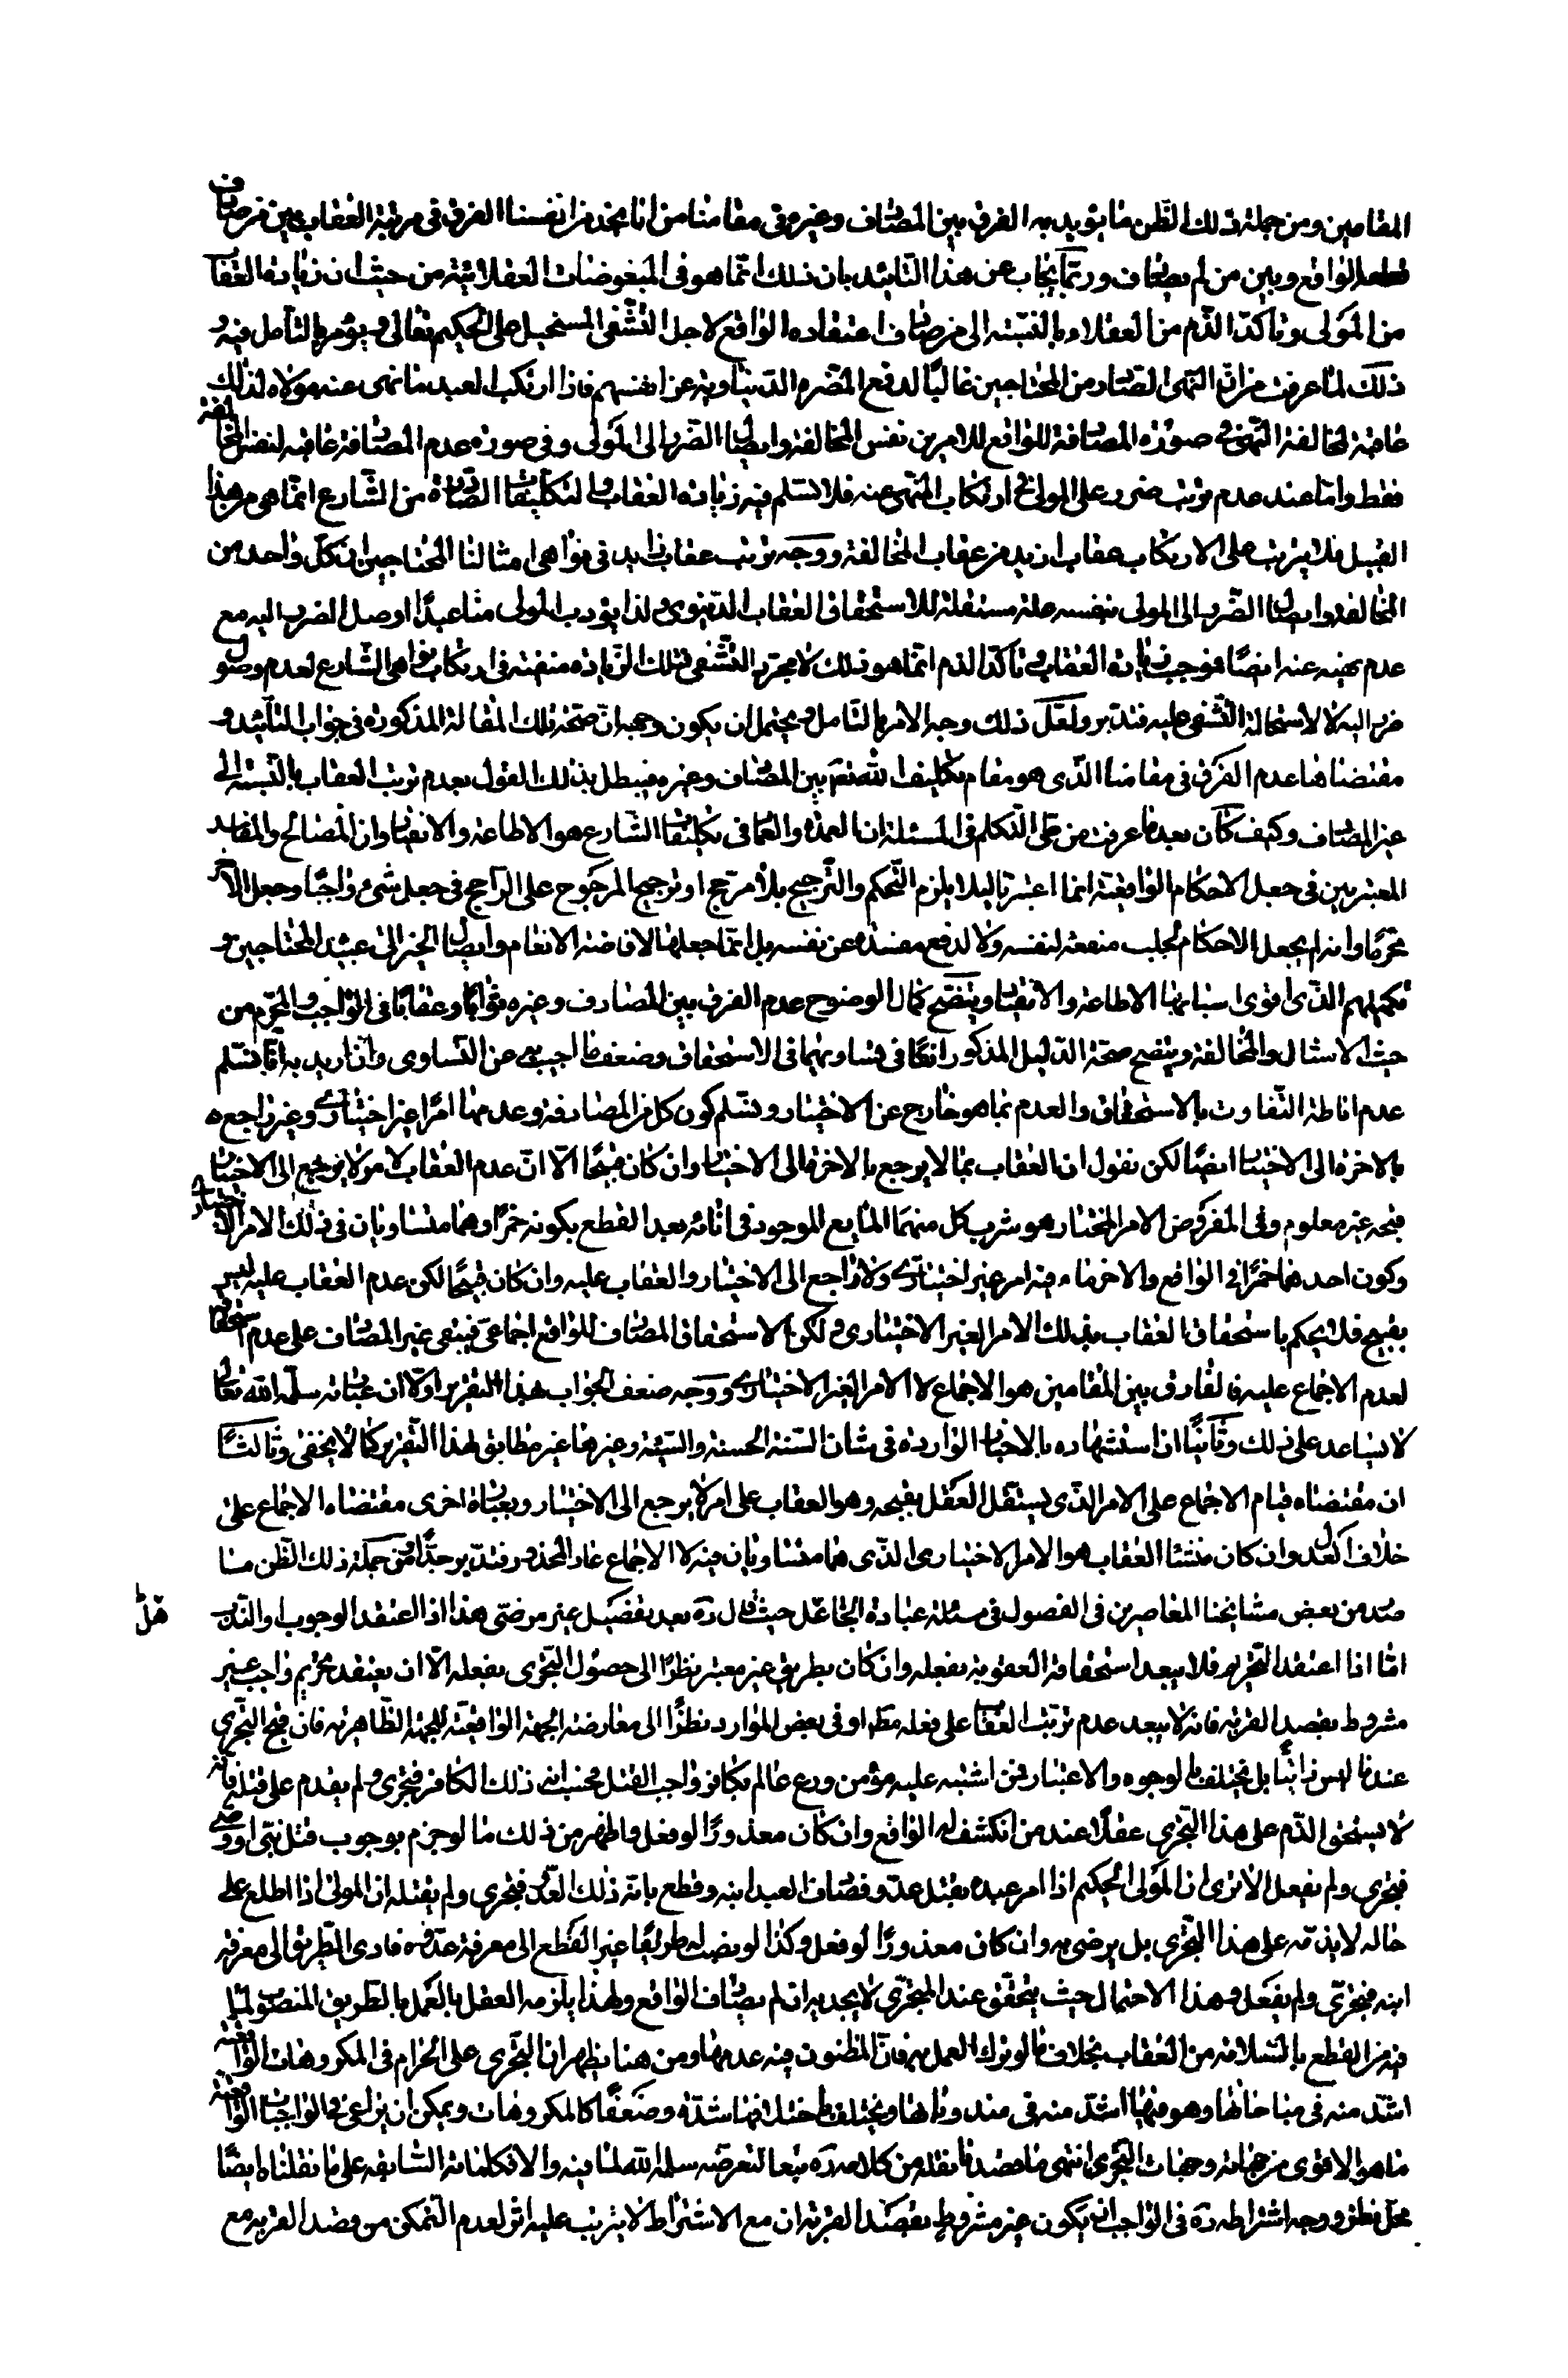 المقامين ومن جملة ذلك الظن ما يؤيد به الفرق بين المصادف وغيره في مقامنا من انا نجد من انفسنا الفرق في مرتبة العقاب بين من صادف
قطعه الواقع وبين من لم يصادف وربما يجاب عن هذا التأييد بان ذلك انما هو في المبغوضات العقلائية من حيث ان زيادة العقاب
من المولى وتاكد الذم من العقلاء بالنسبة الى من صادف اعتقاده الواقع لاجل التشفى المستحيل على الحكيم تعالى ويؤمر بالتأمل فيه و
ذلك لما عرفت من ان النهى الصادر من المحتاجين غالبا لدفع المضرة الدنياوية عن انفسهم فاذا ارتكب العبد ما نهى عنه مولاه لذلك
عاقبة لمخالفة النهى في صورة المصادفة للواقع للامرين نفس المخالفة وايصال الضرر الى المولى وفي صورة عدم المصادفة عاقبه لنفس المخالفة
فقط واما عند عدم ترتب ضرر على المولى في ارتكاب المنهى عنه فلا نسلم فيه زيادة العقاب والتكليفات الصادرة من الشارع انما هى من هذا
القبيل فلا يترتب على الارتكاب عقاب ازيد من عقاب المخالفة ووجه ترتب عقاب زايد في نواهى امثالنا المحتاجين ان كل واحد من
المخالفة وايصال الضرر الى المولى بنفسه علة مستقلة للاستحقاق العقاب الدنيوى ولذا يؤدب المولى مثلا عبدا اوصل الضرر اليه مع
عدم نهيه عنه ايضا فموجب زيادة العقاب وتأكد الذم انما هو ذلك لا مجرد التشفى فتلك الزيادة منتفية في ارتكاب نواهى الشارع لعدم وصول
ضرر اليه لا لاستحالة التشفى عليه فتدبر ولعل ذلك وجه الامر بالتامل ويحتمل ان يكون وجهه ان صحة تلك المقالة المذكورة في جواب التأييد و
مقتضاها عدم الفرق في مقامنا الذى هو مقام تكليف الله تعم بين المصادف وغيره فيبطل بذلك القول بعدم ترتب العقاب بالنسبة الى
غير المصادف وكيف كان بعد ما عرفت من طى التكلم في المسئلة ان العمدة والعماد في تكليفات الشارع هو الاطاعة والانقياد وان المصالح والمفاسد
المعتبرين في جعل الاحكام الواقعية انما اعتبرتا لئلا يلزم التحكم والترجيح بلا مرجح او ترجيح المرجوح على الراجح في جعل شىء واجبا وجعل الآخر
محرما وانه لم يجعل الاحكام لجلب منفعة لنفسه ولا لدفع مفسدة عن نفسه بل انما جعلها لافاضة الانعام وايصال الخير الى عبيده المحتاجين و
تكميلهم الذى اقوى اسبابها الاطاعة والانقياد ويتضح كمال الوضوح عدم الفرق بين المصادف وغيره ثوابا وعقابا في الواجب والمحرم من
حيث الامتثال والمخالفة ويتضح صحة الدليل المذكور انفا في تساويهما في الاستحقاق وضعف ما اجيب به عن التساوى وان اريد به انا نسلم
عدم اناطة التفاوت بالاستحقاق والعدم بما هو خارج عن الاختيار ونسلم كون كل من المصادفة وعدمها امرا غير اختيارى وغير راجعه
بالاخرة الى الاختيار ايضا لكن نقول ان العقاب بما لا يرجع بالاخرة الى الاختيار وان كان قبيحا الا ان عدم العقاب لامر لا يرجع الى الاختيار
قبحه غير معلوم وفى المفروض الامر المختار هو شرب كل منهما المايع الموجود في انائه بعد القطع بكونه خمرا وهما متساويان في ذلك الامر الاختيارى
وكون احدهما خمرا في الواقع والاخر ماء فيه امر غير اختيارى ولا راجع الى الاختيار والعقاب عليه وان كان قبيحا لكن عدم العقاب عليه ليس
بقبيح فلا يحكم باستحقاق العقاب بذلك الامر الغير الاختيارى ولكن الاستحقاق المصادف للواقع اجماعى فيبقى غير المصادف على عدم استحقاق
لعدم الاجماع عليه فالفارق بين المقامين هو الاجماع لا الامر الغير الاختيارى ووجه ضعف الجواب بهذا التقرير اولا ان عبارته سلمه الله تعالى
لا يساعد على ذلك وثانيا ان استشهاده بالاخبار الواردة في شان السنة الحسنة والسيئة وغيرها غير مطابق لهذا التقرير كما لا يخفى وثالثا
ان مقتضاه قيام الاجماع على الامر الذى يستقل العقل بقبحه وهو العقاب على امر لا يرجع الى الاختيار وبعبارة اخرى مقتضاه الاجماع على
خلاف العدل وان كان منشأ العقاب هو الامر الاختيارى الذى هما متساويان فيه لا الاجماع عاد المحذور فتدبر جدا ومن جملة ذلك الظن ما
صدر من بعض مشايخنا المعاصرين في الفصول في مسئلة عبادة الجاهل حيث قال ره بعد تفصيل غير مرضى هذا اذا اعتقد الوجوب او الندب
اما اذا اعتقد التحريم فلا يبعد استحقاقه العقوبة بفعله وان كان بطريق غير معتبر نظرا الى حصول التجرى بفعله الا ان يعتقد تحريم واجب غير
مشروط بقصد القربة فانه لا يبعد عدم ترتب العقاب على فعله مطلقا او في بعض الموارد نظرا الى معارضة الجهة الواقعية للجهة الظاهرية فان قبح التجرى
عندنا ليس ذاتيا بل يختلف بالوجوه والاعتبار فمن اشتبه عليه مؤمن ورع عالم بكافر واجب القتل فحسب انه ذلك الكافر فتجرى ولم يقدم على قتله فانه
لا يستحق الذم على هذا التجرى عقلا عند من انكشف له الواقع وان كان معذورا لو فعل واظهر من ذلك ما لو جزم بوجوب قتل نبى او وصى
فتجرى ولم يفعل الا ترى ان المولى الحكيم اذا امر عبده بقتل عدو فصادف العبد ابنه وقطع بانه ذلك العدو فتجرى ولم يقتله ان المولى اذا اطلع على
حاله لا يذمه على هذا التجرى بل يرضى به وان كان معذورا لو فعل وكذا لو نصب له طريقا غير القطع الى معرفة عدوه فادى الطريق الى معرفة
ابنه فتجرى ولم يفعل وهذا الاحتمال حيث يتحقق عند المتجرى لا يجديه ان لم يصادف الواقع ولهذا يلزمه العقل بالعمل بالطريق المنصوب لما
فيه من القطع بالسلامة من العقاب بخلاف ما لو ترك العمل به فان المظنون فيه عدمها ومن هنا يظهر ان التجرى على الحرام في المكروهات الواقعية
اشد منه في مباحاتها وهو فيها اشد منه في مندوباتها ويختلف باختلافها شدة وضعفا كالمكروهات ويمكن ان يراعى في الواجبات الواقعية
ما هو الاقوى من جهاته وجهات التجرى انتهى ما قصدنا نقله من كلامه ره تبعا لتعرضه سلمه الله لما فيه والا فكلماته السابقه على ما نقلناه ايضا
محل نظر ووجه اشتراطه ره في الواجب ان يكون غير مشروط بقصد القربة ان مع الاشتراط لا يترتب عليه اثر لعدم التمكن من قصد القربه مع